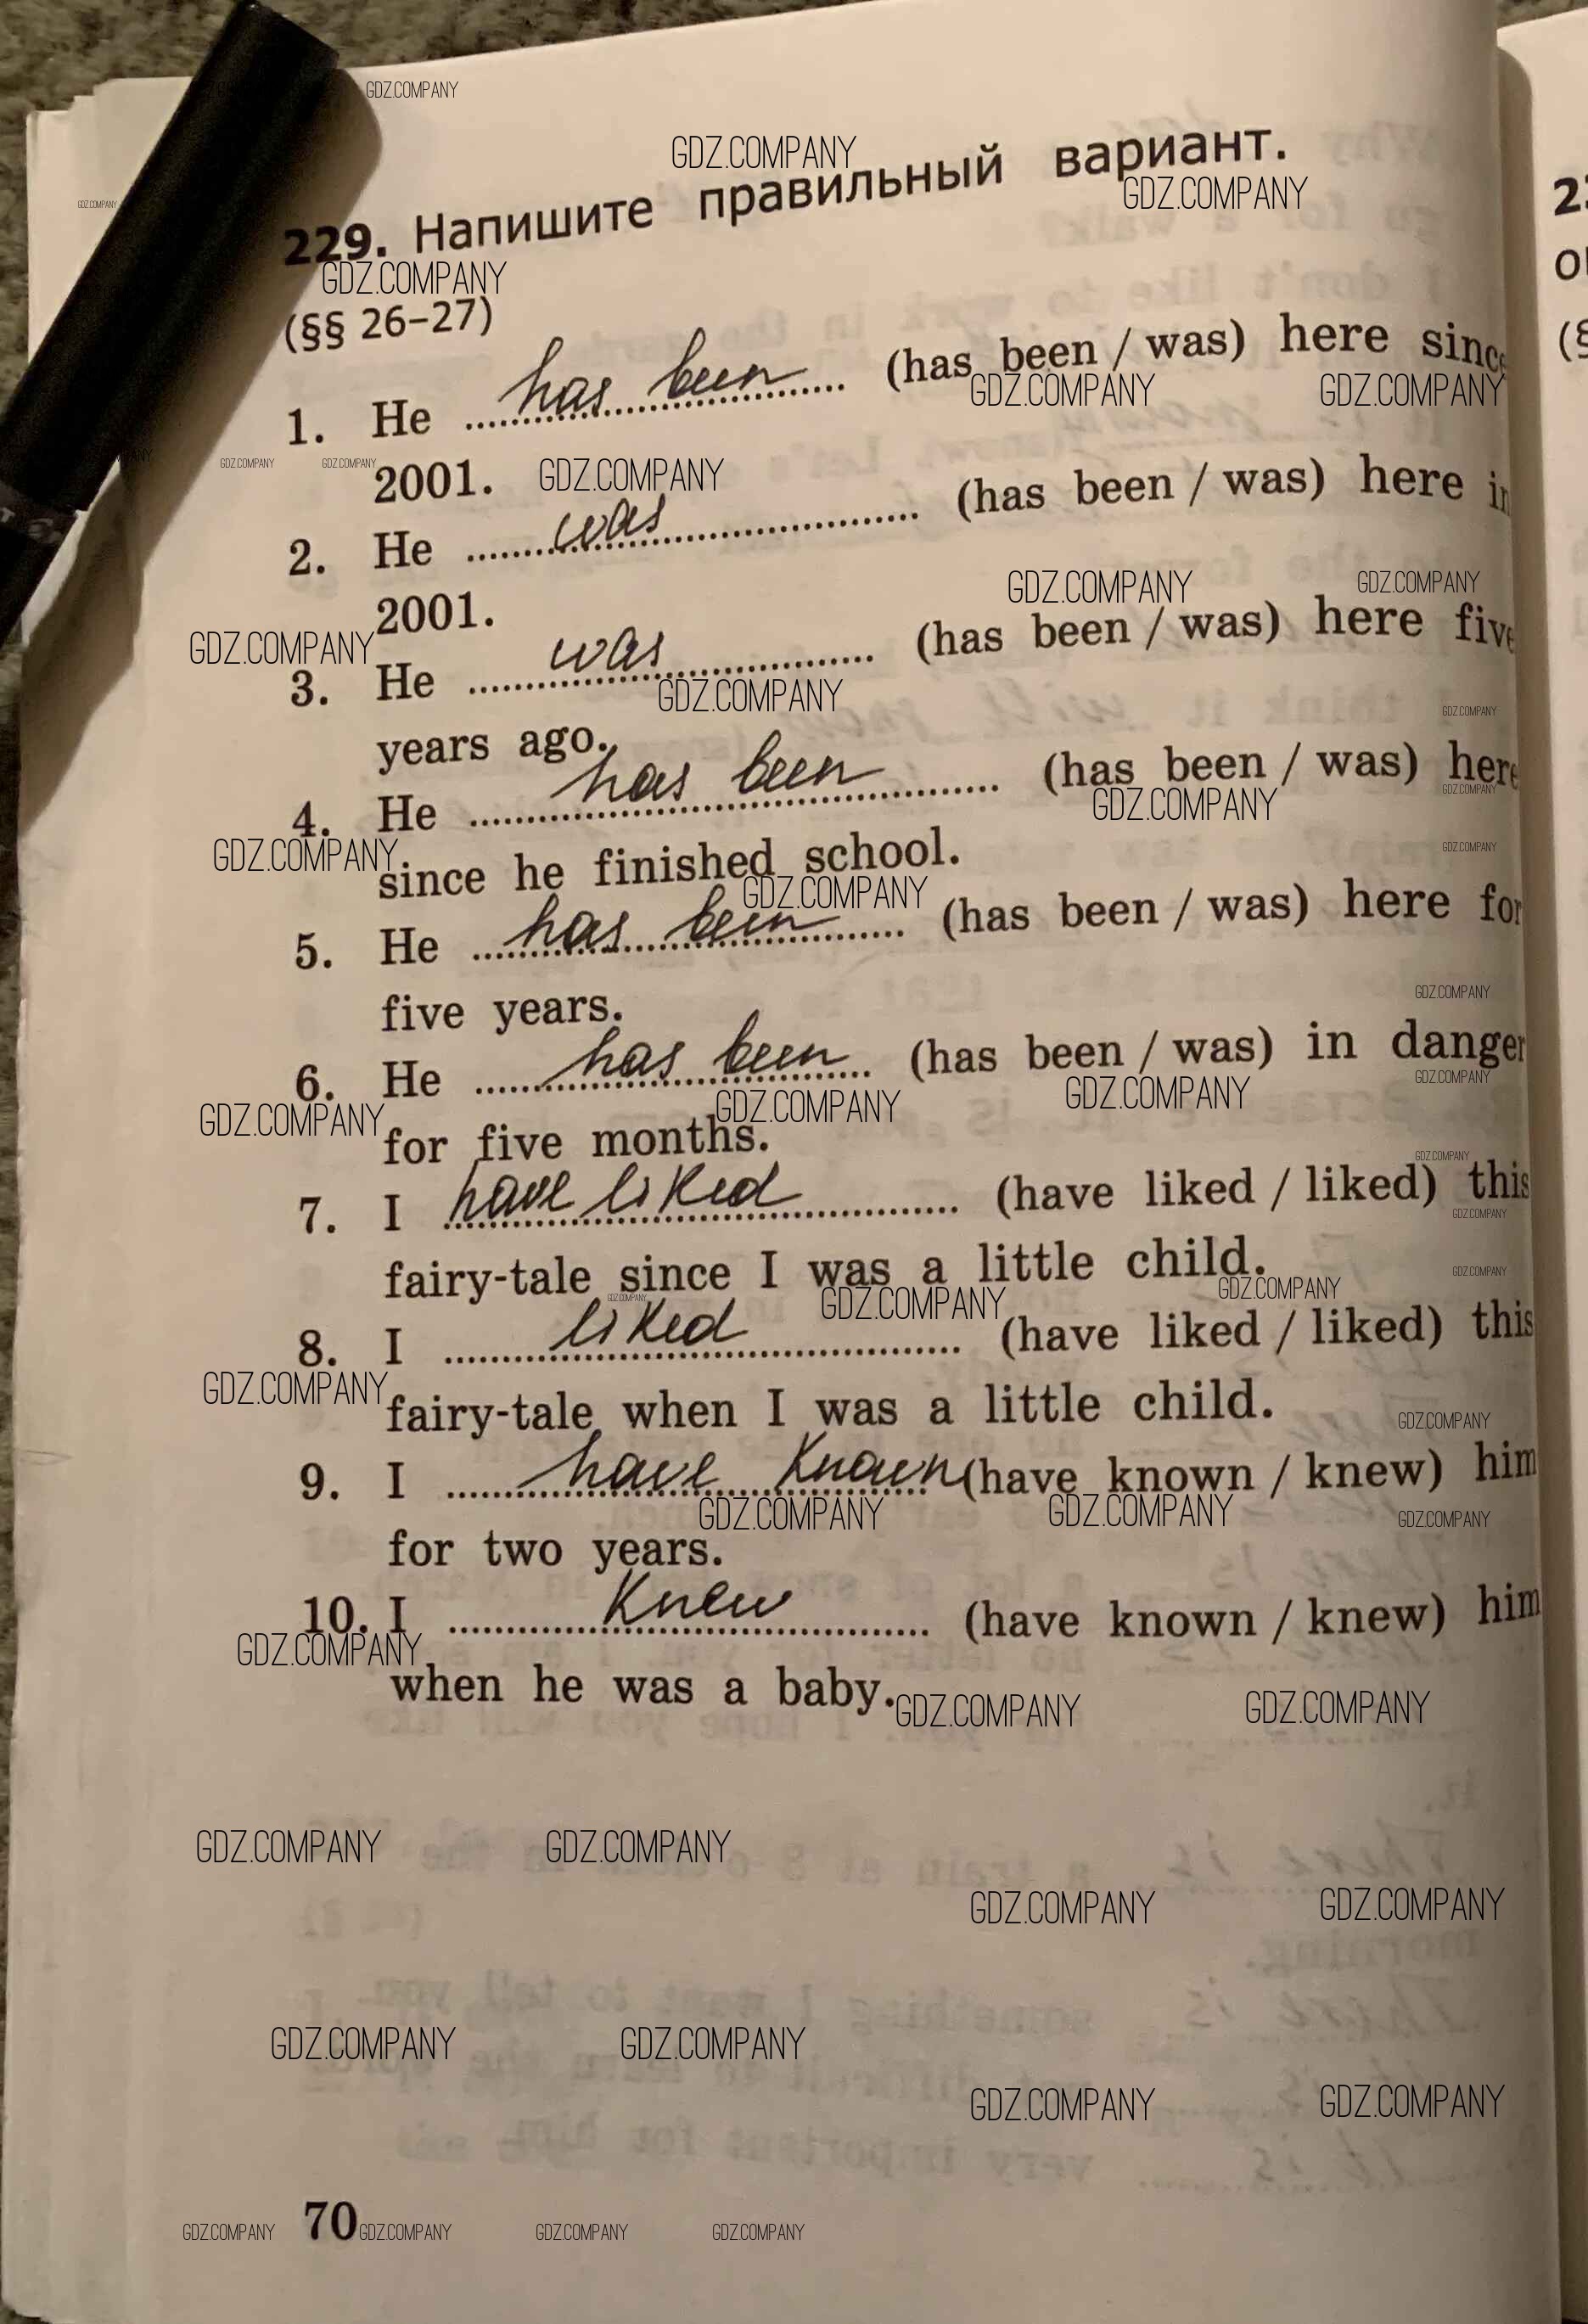 229. Напишите правильный вариант.
(§§ 26–27)
1. He has been (has been / was) here since
2001.
2. He was (has been / was) here in
2001.
3. He was (has been / was) here five
years ago.
4. He has been (has been / was) here
since he finished school.
5. He has been (has been / was) here for
five years.
6. He has been (has been / was) in danger
for five months.
7. I have liked (have liked / liked) this
fairy-tale since I was a little child.
8. I liked (have liked / liked) this
fairy-tale when I was a little child.
9. I have known (have known / knew) him
for two years.
10. I knew (have known / knew) him
when he was a baby.
70
GDZ.COMPANY